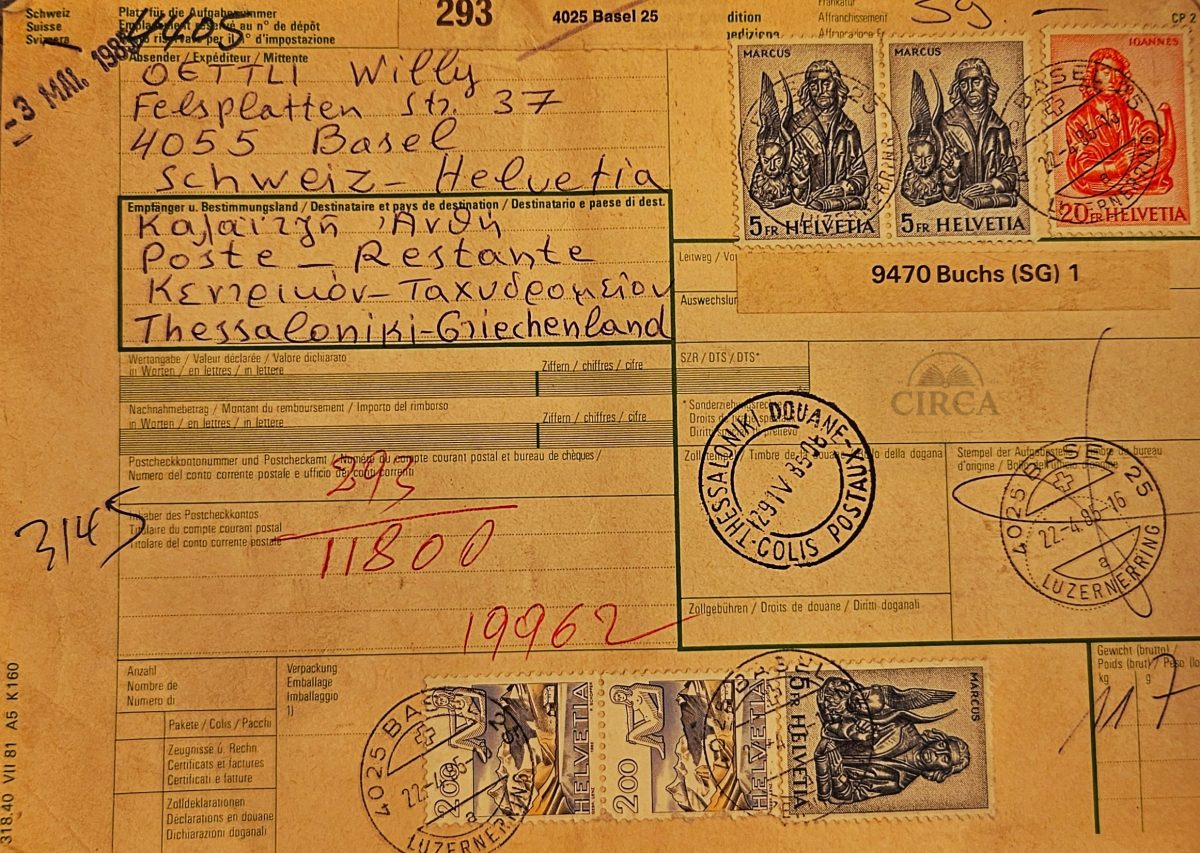 Schweiz
Suisse
Svizzera
Platz für die Aufgabenummer
Emplacement réservé au n° de dépôt
riservato per il n° d'impostazione
4405
293
4025 Basel 25
Affranchissement
59.—
CP 2
- 3 MAI. 198
Absender / Expéditeur / Mittente
OETTLI Willy
Felsplatten Str. 37
4055 Basel
Schweiz - Helvetia
Empfänger u. Bestimmungsland / Destinataire et pays de destination / Destinatario e paese di dest.
Καλαϊτζῆ Ἀνθή
Poste - Restante
Κεντρικὸν - Ταχυδρομεῖον
Thessaloniki-Griechenland
MARCUS
5 FR HELVETIA
MARCUS
5 FR HELVETIA
IOANNES
20 FR HELVETIA
BASEL 25
22-4.85-16
a
LUZERNERRING
Leitweg / Voi
9470 Buchs (SG) 1
Auswechslun
Wertangabe / Valeur déclarée / Valore dichiarato
in Worten / en lettres / in lettere
Ziffern / chiffres / cifre
SZR / DTS / DTS*
CIRCA
Nachnahmebetrag / Montant du remboursement / Importo del rimborso
in Worten / en lettres / in lettere
Ziffern / chiffres / cifre
* Sonderziehungsrecht
Droits de tirage
Diritti
Zollstempel / Timbre de la douane / Bollo della dogana
Stempel der Aufgabestelle / Timbre du bureau
d'origine / Bollo dell'ufficio
THESSALONIKI DOUANE-
COLIS POSTAUX
29 IV 85
4025 BASEL 25
22-4.85-16
a
LUZERNERRING
Postcheckkontonummer und Postcheckamt / Numéro du compte courant postal et bureau de chèques /
Numero del conto corrente postale e ufficio dei conti correnti
393
3145
Inhaber des Postcheckkontos
Titulaire du compte courant postal
Titolare del conto corrente postale
11800
19962
Zollgebühren / Droits de douane / Diritti doganali
Anzahl
Nombre de
Numero di
Verpackung
Emballage
Imballaggio
1)
Gewicht (brutto) /
Poids (brut) / Peso (lo
kg
g
117
Pakete / Colis / Pacchi
Zeugnisse u. Rechn.
Certificats et factures
Certificati e fatture
Zolldeklarationen
Déclarations en douane
Dichiarazioni doganali
4025 BASEL 25
a
LUZERNERRING
200
HELVETIA
200
HELVETIA
5 FR HELVETIA
MARCUS
318.40 VII 81 A5 K 160